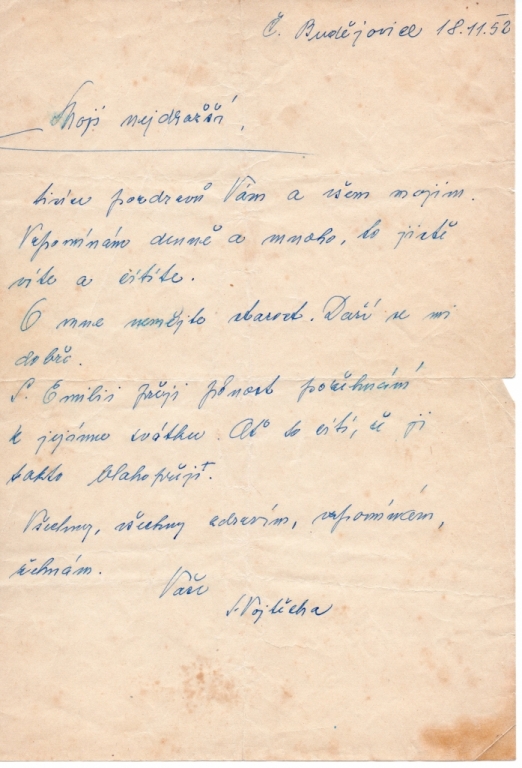 Č. Budějovice 18.11.52
Moji nejdražší,
tisíce pozdravů Vám a všem mojim.
Vzpomínám denně a mnoho, to jistě
víte a cítíte.
O mne nemějte starost. Daří se mi
dobře.
S. Emilii přeji plnost požehnání
k jejímu svátku. Ať to cítí, že ji
takto blahopřeji.
Všechny, všechny zdravím, vzpomínám,
žehnám.
Vaše
S. Vojtěcha